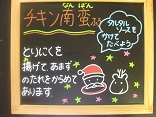 なんばん
チキン南蛮
タルタル
ソースを
かけて
たべよう
とりにくを
揚げて、あまず
のたれをからめて
あります。